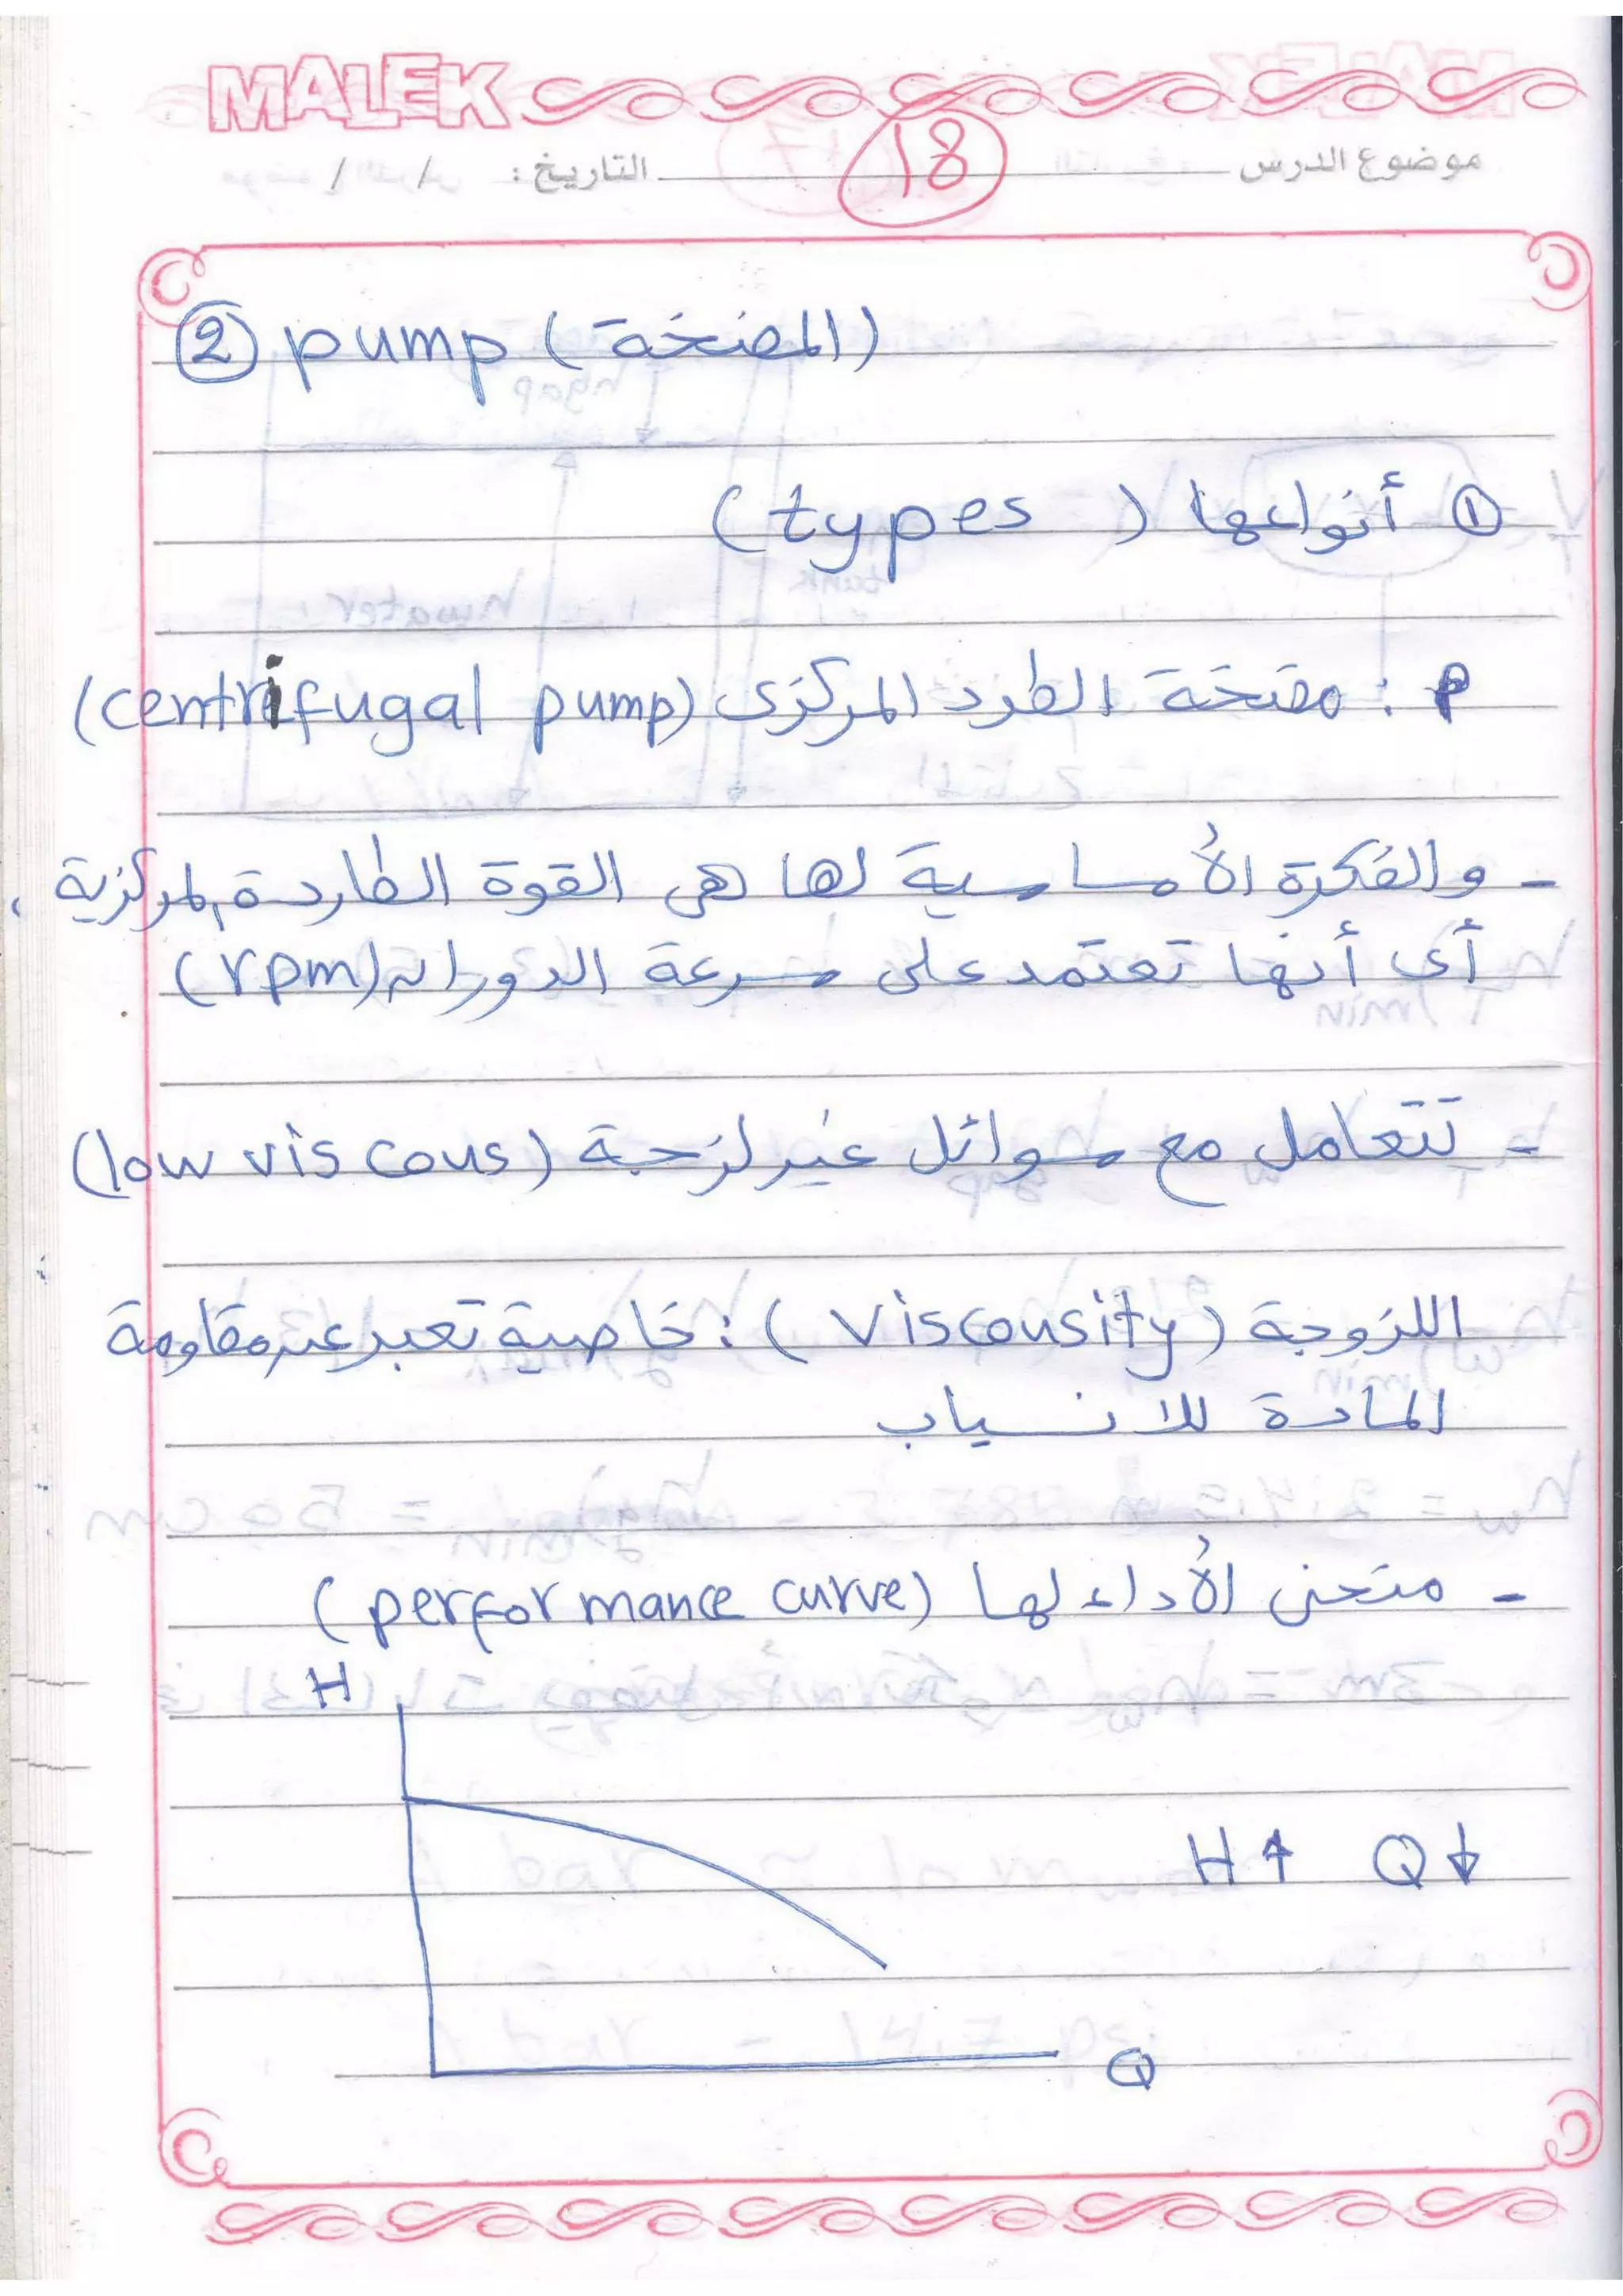 MALEK
موضوع الدرس 18 التاريخ : / /
② pump (المضخة)
① أنواعها (types)
P : مضخة الطرد المركزى (centrifugal pump)
- والفكرة الأساسية لها هى القوة الطاردة المركزية ،
أى أنها تعتمد على سرعة الدوران (rpm)
- تتعامل مع سوائل غير لزجة (low viscous)
اللزوجة (Viscousity) : خاصية تعبر عن مقاومة
المادة للانسياب
- منحنى الأداء لها (performance curve)
H
H↑ Q↓
Q